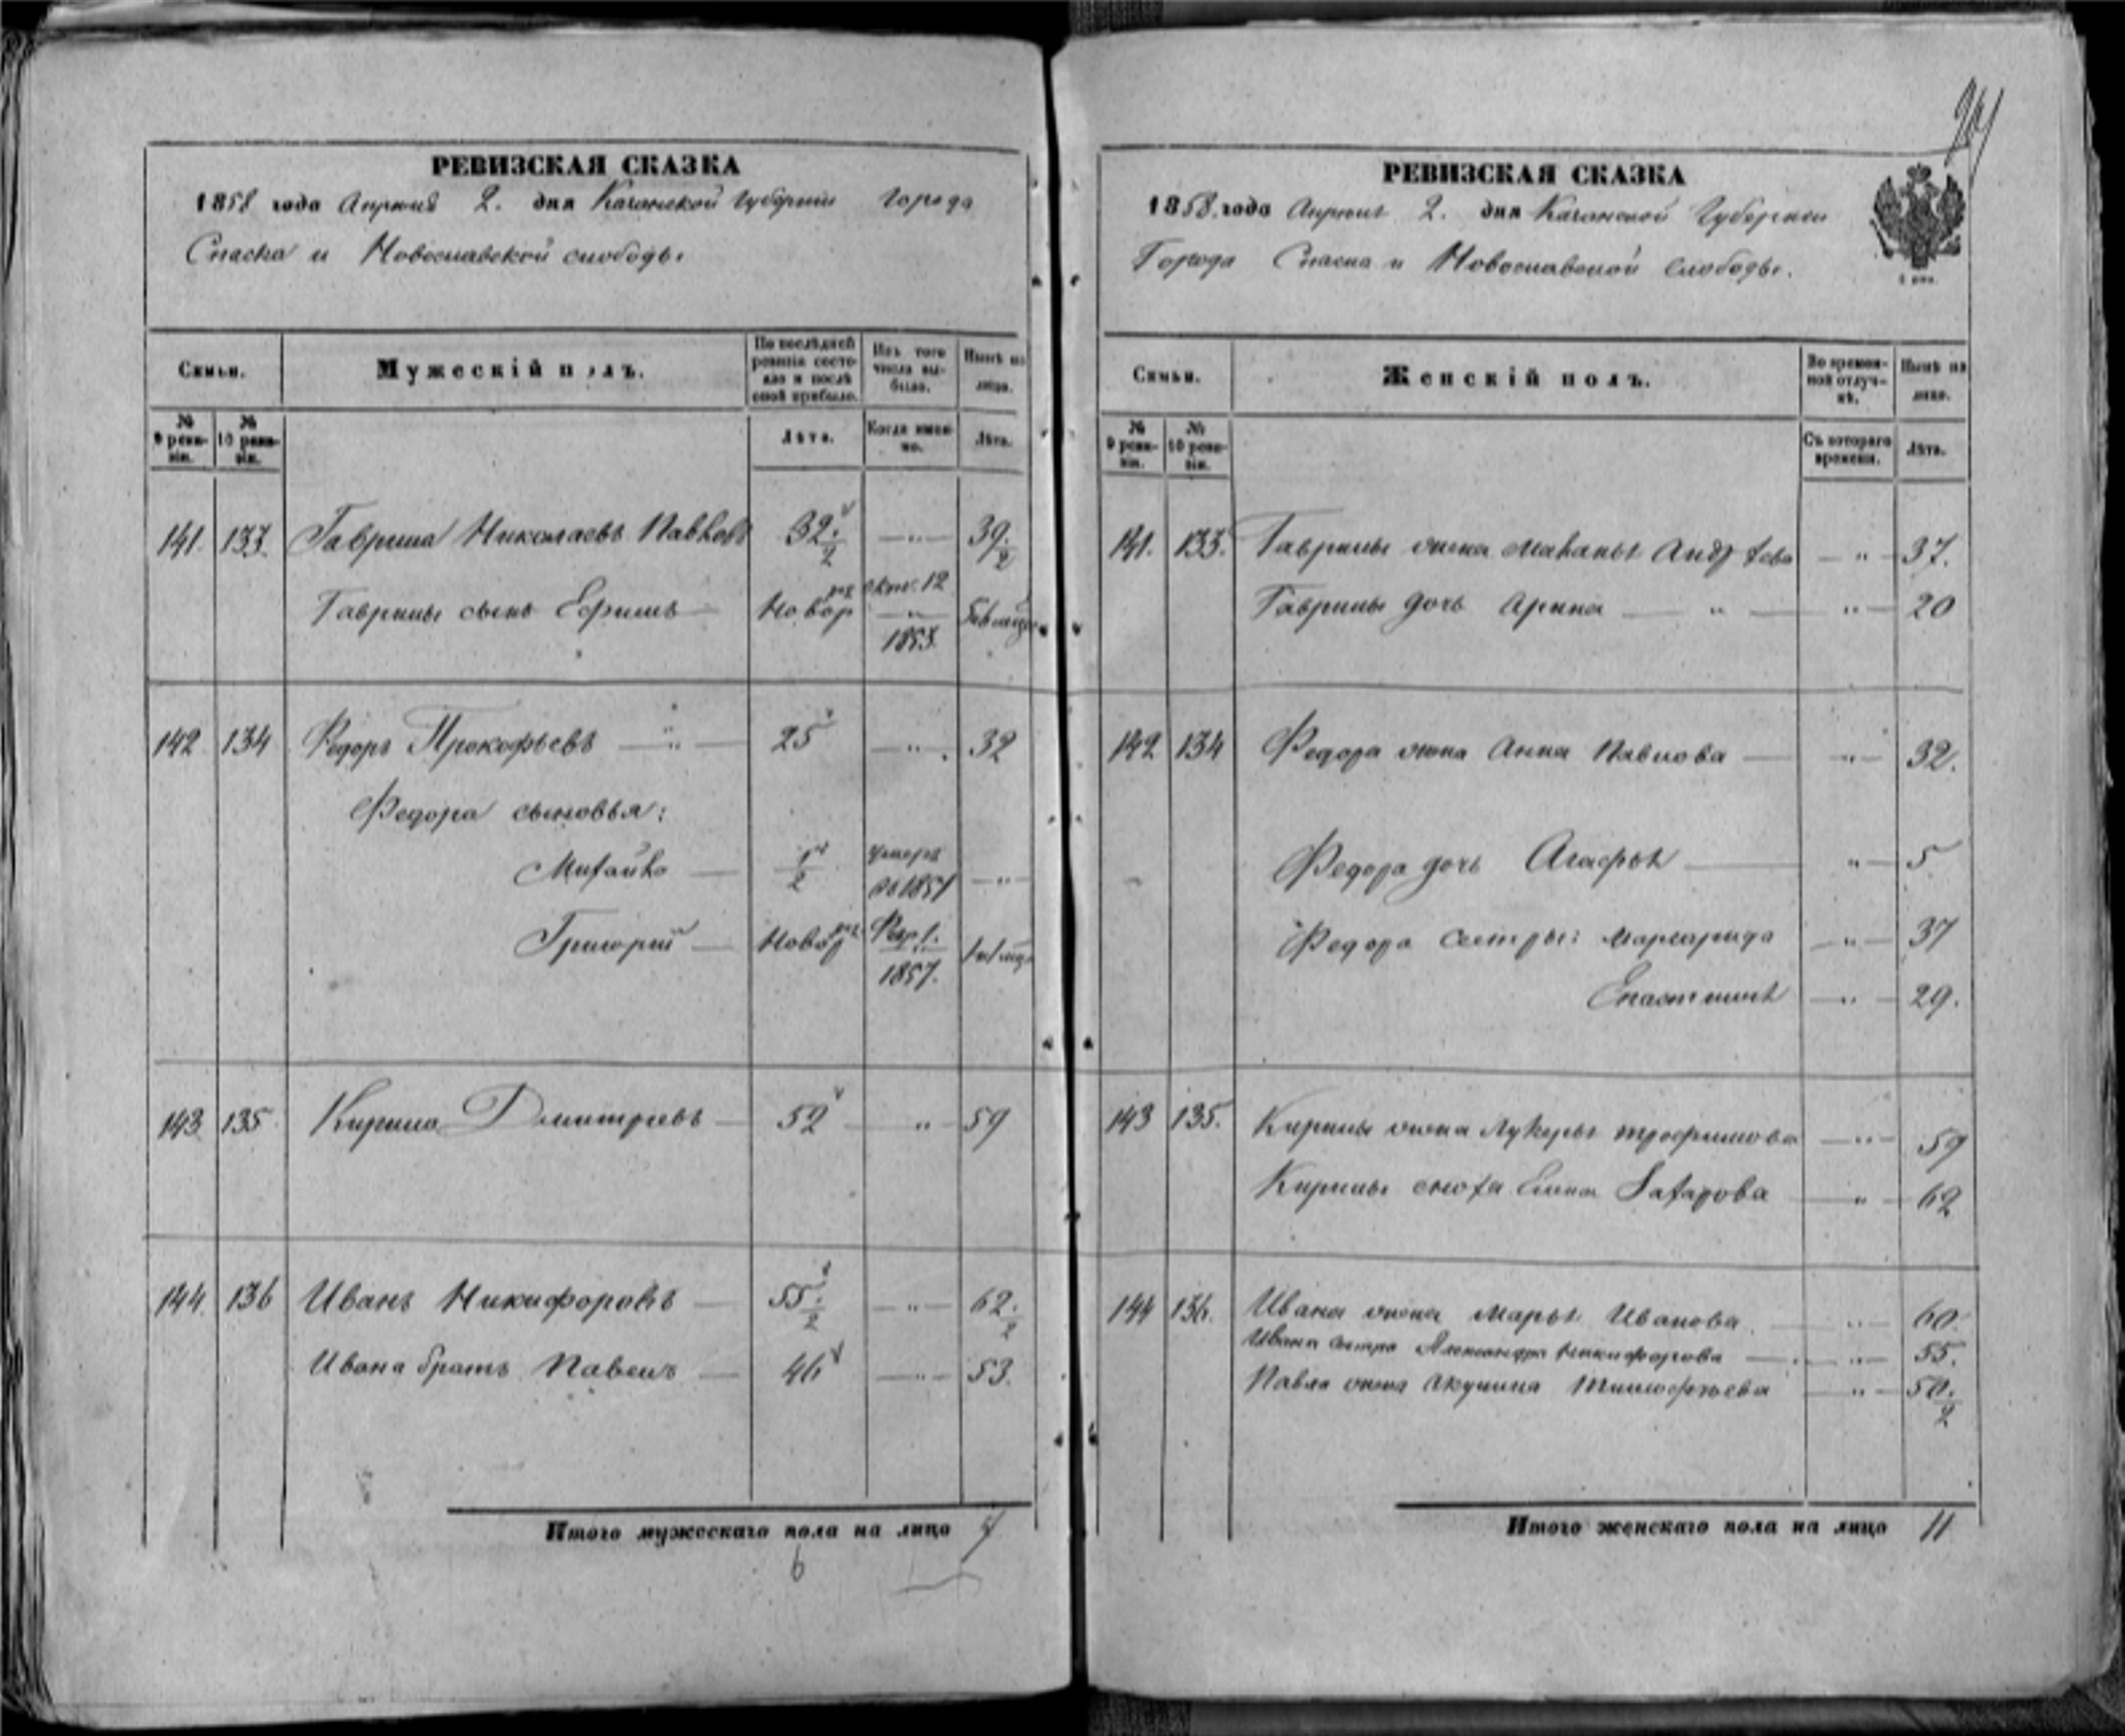 РЕВИЗСКАЯ СКАЗКА
1858 года Апреля 2. дня Казанской Губернии Города
Спаска и Новоспаской слободы
Семьи. Мужескій полъ. По послѣдней ревизіи состояло и послѣ оной прибыло. Изъ того числа выбыло. Нынѣ на лицо.
№ 9 ревизіи. № 10 ревизіи. Лѣта. Когда именно. Лѣта.
141. 133. Гаврила Николаевъ 32½ — " — 39½
Гаврилы сынъ Ефимъ — Новор 12 1853.
142 134 Федоръ Прокофьевъ — " — 25 — " — 32
Федора сыновья:
Михайло — ½ умеръ 1851 — " —
Григорій — Новор 1857.
143 135 Кирила Дмитріевъ — 52 " — 59
144. 136 Иванъ Никифоровъ — 55½ — " — 62½
Ивана братъ Павелъ — 46 — " — 53.
Итого мужескаго пола на лицо 7
6
РЕВИЗСКАЯ СКАЗКА
1858 года Апреля 2. дня Казанской Губернии
Города Спаска и Новоспаской Слободы.
Семьи. Женскій полъ. Во временной отлучкѣ. Нынѣ на лицо.
№ 9 ревизіи. № 10 ревизіи. Съ котораго времени. Лѣта.
141. 133. Гаврилы жена — " — 37.
Гаврилы дочь Арина — " — " — 20
142 134 Федора жена Анна Павлова — " — 32.
Федора дочь — " — 5
Федора сестры: Маргарида — " — 37
— " — 29.
143 135. Кирилы жена Трофимова — " — 59
Кирилы сноха Елена Захарова — " — 62
144 136. Ивана жена Марья Иванова — " — 60
Ивана сестра Александра Никифорова — " — 55.
Павла жена Акулина Тимофѣева — " — 50½
Итого женскаго пола на лицо 11